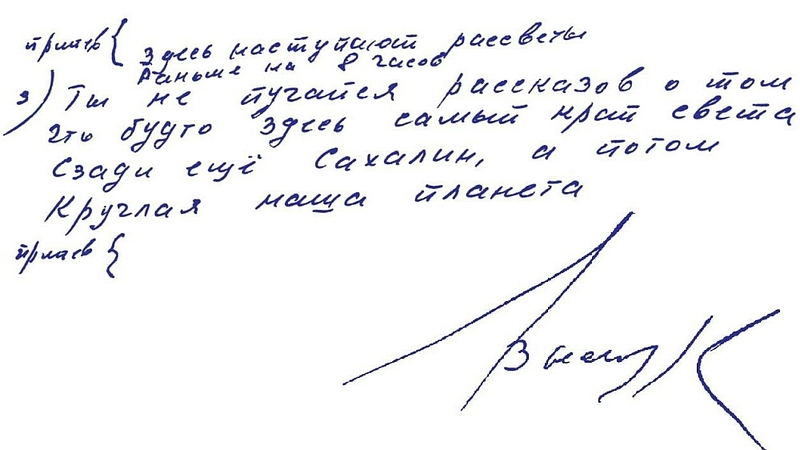 припев { Здесь наступают рассветы
Раньше на 8 часов
3) Ты не пугайся рассказов о том
Что будто здесь самый край света
Сзади ещё Сахалин, а потом
Круглая наша планета
припев {